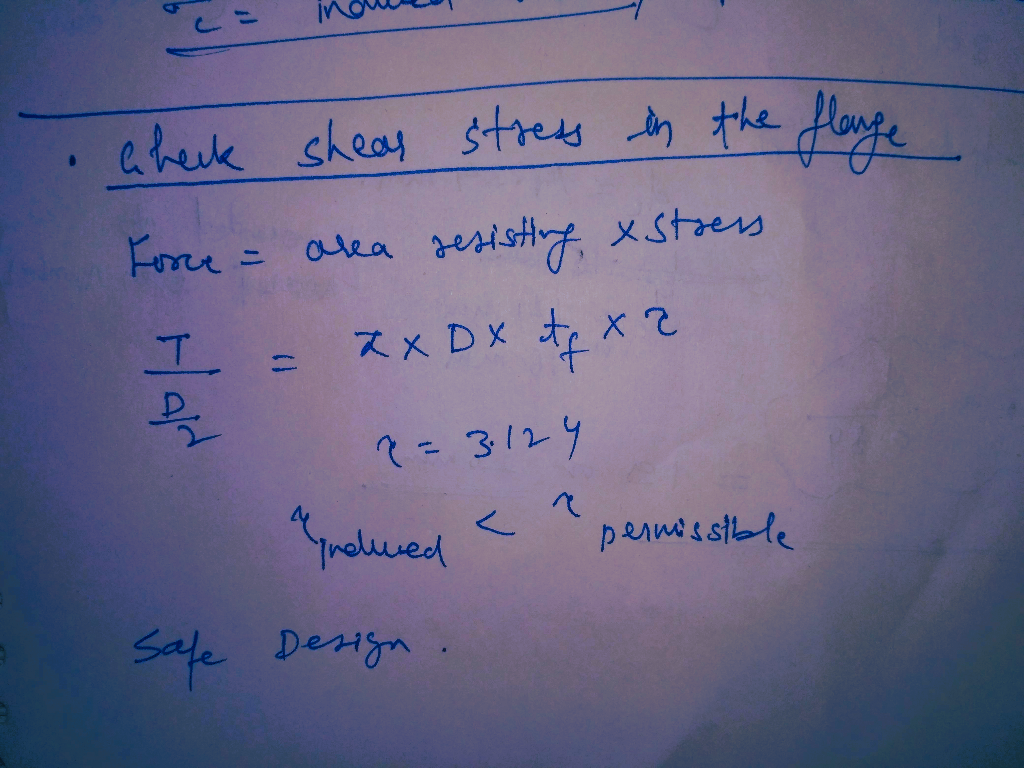 c = induced
• Check shear stress in the flange
Force = area resisting × stress
T / D/2 = π × D × tf × τ
τ = 3.124
τ induced < τ permissible
Safe Design.